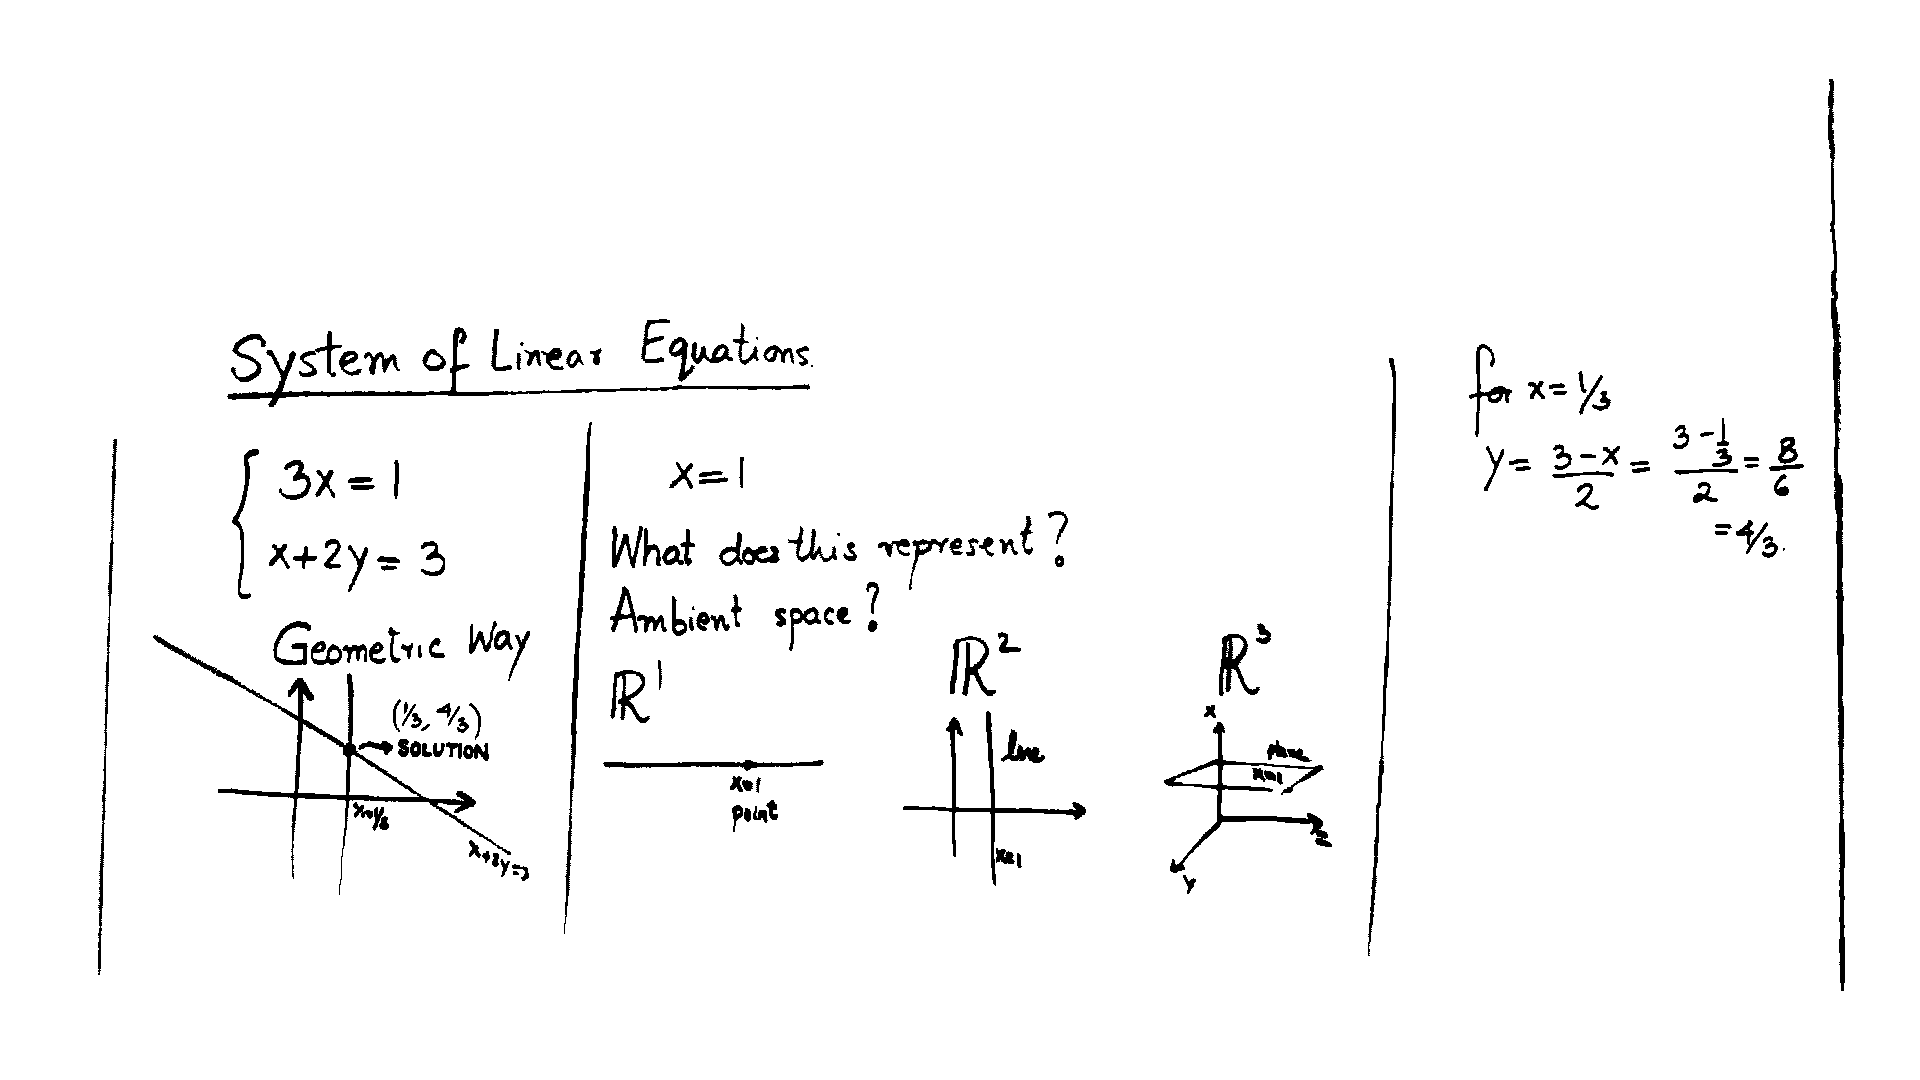 System of Linear Equations.
3x = 1
x+2y = 3
Geometric Way
(1/3, 4/3)
SOLUTION
x=1/3
x+2y=3
x=1
What does this represent?
Ambient space?
ℝ¹
x=1
point
ℝ²
line
x=1
ℝ³
x
plane
x=1
z
y
for x = 1/3
y = (3-x)/2 = (3-1/3)/2 = 8/6
= 4/3.